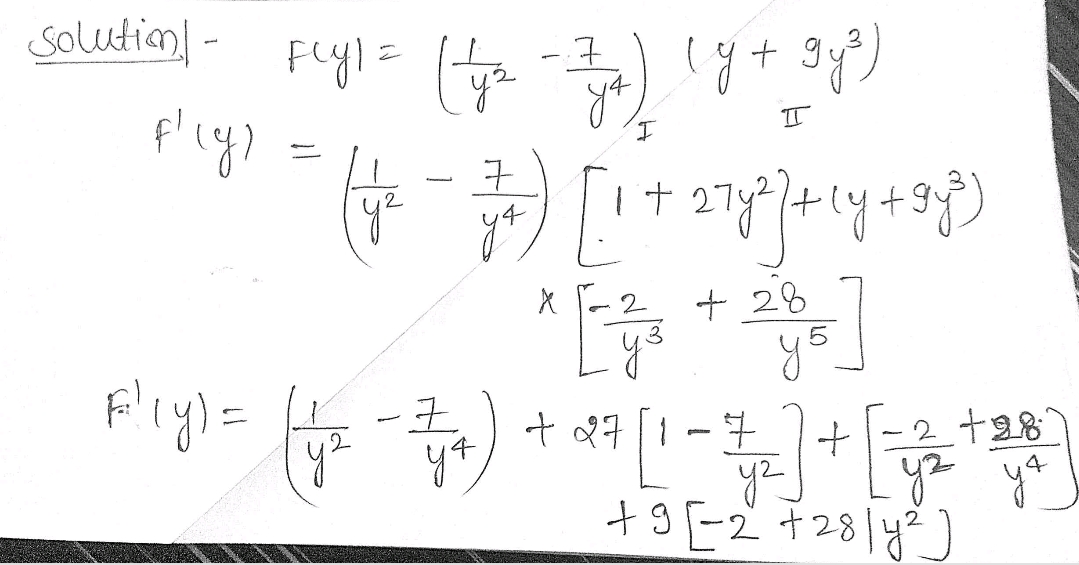 Solution -  F(y) = (1/y² - 7/y⁴) (y + 9y³)
I  II
F'(y) = (1/y² - 7/y⁴) [1 + 27y²] + (y + 9y³)
× [-2/y³ + 28/y⁵]
F'(y) = (1/y² - 7/y⁴) + 27 [1 - 7/y²] + [-2/y² + 28/y⁴]
+ 9 [-2 + 28/y²]